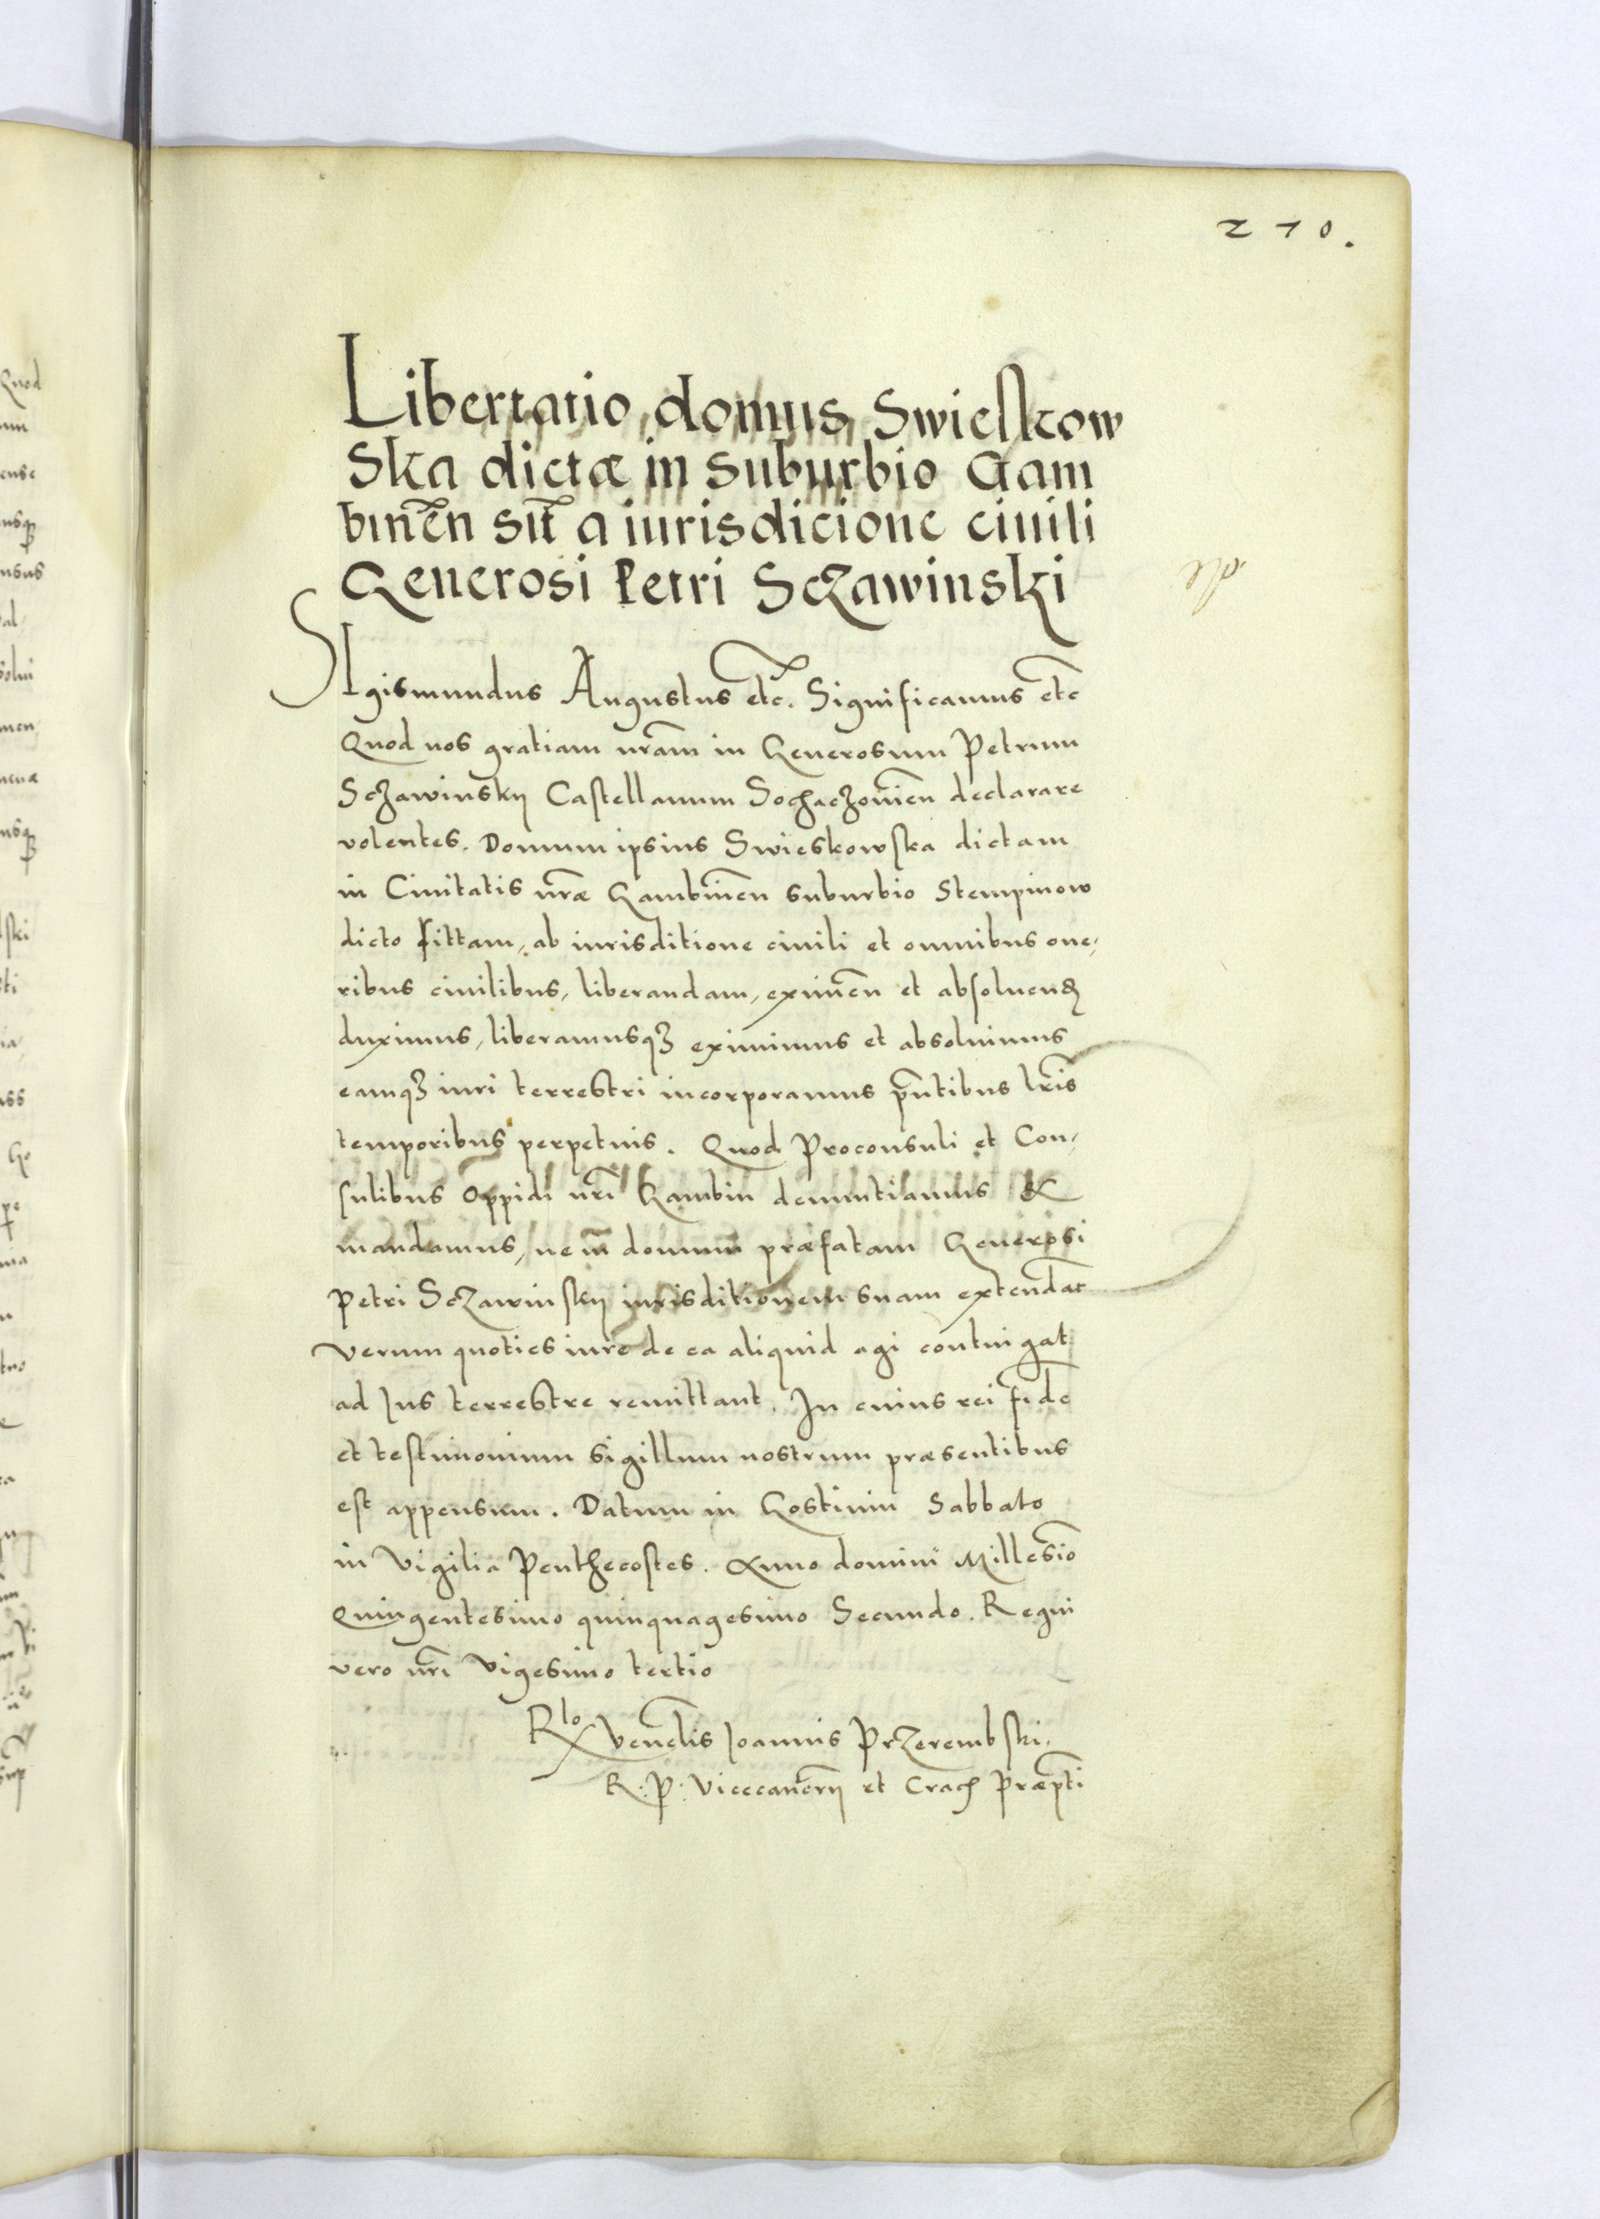 210.
Libertatio domus Swieskow
Ska dictæ in suburbio Gam
binen̄ sit̄ a iurisdicione ciuili
Generosi Petri Sczawinski
SIgismundus Augustus etc̄. Significamus etc̄
Quod nos gratiam nr̄am in Generosum Petrum
Sczawinskij Castellanum Sochaczowien̄ declarare
volentes. Domum ipsius Swieskowska dictam
in Ciuitatis nr̄æ Gambinen̄ suburbio Stempinow
dicto sittam, ab iurisditione ciuili et omnibus one,
ribus ciuilibus, liberandam, eximen̄ et absoluend
duximus, liberamusqȝ eximimus et absoluimus
eamqȝ iuri terrestri incorporamus pn̄tibus lr̄is
temporibus perpetuis. Quod Proconsuli et Con,
sulibus Oppidi nr̄i Gambin denuntiamus &
mandamus, ne in̄ domum præfatam Generosi
Petri Sczawinskij iurisditionem suam extendat
verum quoties iure de ea aliquid agi contingat
ad Ius terrestre remittant. In cuius rei fidē
et testimonium sigillum nostrum præsentibus
est appensum. Datum in Gostinin Sabbato
in Vigilia Penthecostes. Anno domini Millesīo
Quingentesimo quinquagesimo Secundo. Regni
vero nr̄i Vigesimo tertio
Rlo Venēlis Ioannis Przerembski.
R: P: Vicecancrīj et Crac Præptī